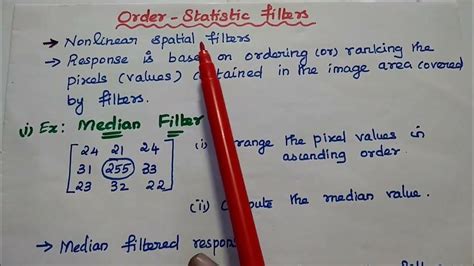 Order-Statistic Filters
→ Nonlinear spatial filters
→ Response is based on ordering (or) ranking the
pixels (values) contained in the image area covered
by filters.
(i) Ex: Median Filter
24 21 24
31 255 33
23 32 22
(i) the pixel values in
ascending order.
(ii) the median value.
→ Median filtered